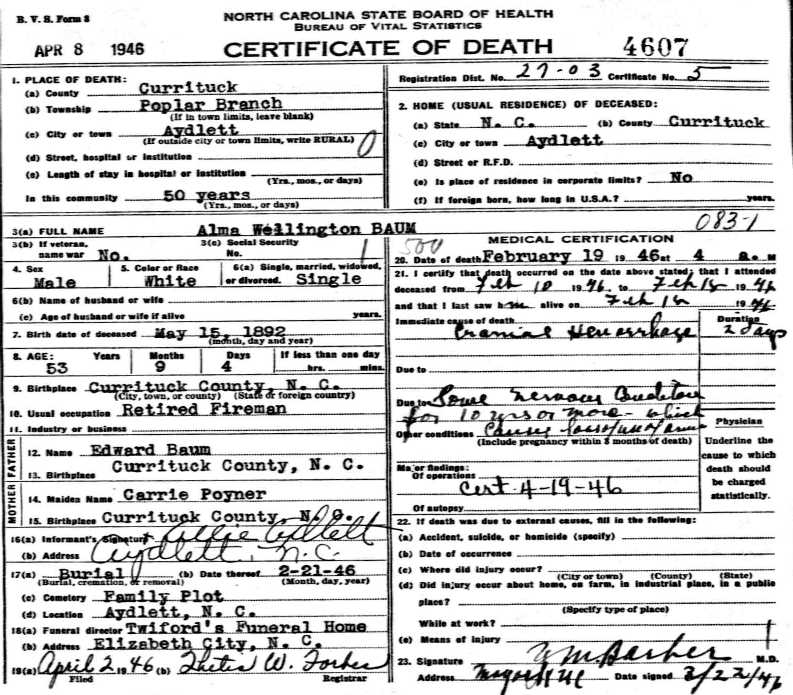 B. V. S. Form 8
NORTH CAROLINA STATE BOARD OF HEALTH
BUREAU OF VITAL STATISTICS
APR 8 1946
CERTIFICATE OF DEATH
4607
Registration Dist. No. 27-03 Certificate No. 5
1. PLACE OF DEATH:
(a) County Currituck
(b) Township Poplar Branch
(If in town limits, leave blank)
(c) City or town Aydlett
(If outside city or town limits, write RURAL)
0
(d) Street, hospital or institution
(e) Length of stay in hospital or institution
(Yrs., mos., or days)
In this community 50 years
(Yrs., mos., or days)
2. HOME (USUAL RESIDENCE) OF DECEASED:
(a) State N. C. (b) County Currituck
(c) City or town Aydlett
(d) Street or R.F.D.
(e) Is place of residence in corporate limits? No
(f) If foreign born, how long in U.S.A.? years.
3(a) FULL NAME Alma Wellington BAUM
083-1
3(b) If veteran, name war No.
3(c) Social Security No.
1
4. Sex Male
5. Color or Race White
6(a) Single, married, widowed, or divorced. Single
6(b) Name of husband or wife
(c) Age of husband or wife if alive years.
7. Birth date of deceased May 15, 1892
(month, day and year)
8. AGE: 53 Years 9 Months 4 Days If less than one day hrs. mins.
9. Birthplace Currituck County, N. C.
(City, town, or county) (State or foreign country)
10. Usual occupation Retired Fireman
11. Industry or business
FATHER
12. Name Edward Baum
13. Birthplace Currituck County, N. C.
MOTHER
14. Maiden Name Carrie Poyner
15. Birthplace Currituck County, N. C.
16(a) Informant's Signature Aydlett
(b) Address Aydlett, N.C.
17(a) Burial (b) Date thereof 2-21-46
(Burial, cremation, or removal) (Month, day, year)
(c) Cemetery Family Plot
(d) Location Aydlett, N. C.
18(a) Funeral director Twiford's Funeral Home
(b) Address Elizabeth City, N. C.
19(a) April 2 1946 (b) Thetis W. Forbes
Filed Registrar
500
MEDICAL CERTIFICATION
20. Date of death February 19 1946 at 4 a. M
21. I certify that death occurred on the date above stated; that I attended
deceased from Feb 10 1946, to Feb 18 1946
and that I last saw him alive on Feb 18 1946
Immediate cause of death Duration
Cranial Hemorrhage 2 days
Due to
Due to Some nervous Condition
for 10 yrs or more - which
Other conditions Causes loss of use of arms
(Include pregnancy within 3 months of death)
Physician
Underline the cause to which death should be charged statistically.
Major findings:
Of operations
Cert 4-19-46
Of autopsy
22. If death was due to external causes, fill in the following:
(a) Accident, suicide, or homicide (specify)
(b) Date of occurrence
(c) Where did injury occur?
(City or town) (County) (State)
(d) Did injury occur about home, on farm, in industrial place, in a public
place?
(Specify type of place)
While at work?
(e) Means of injury
1
23. Signature Barber M.D.
Address Date signed 3/22/46